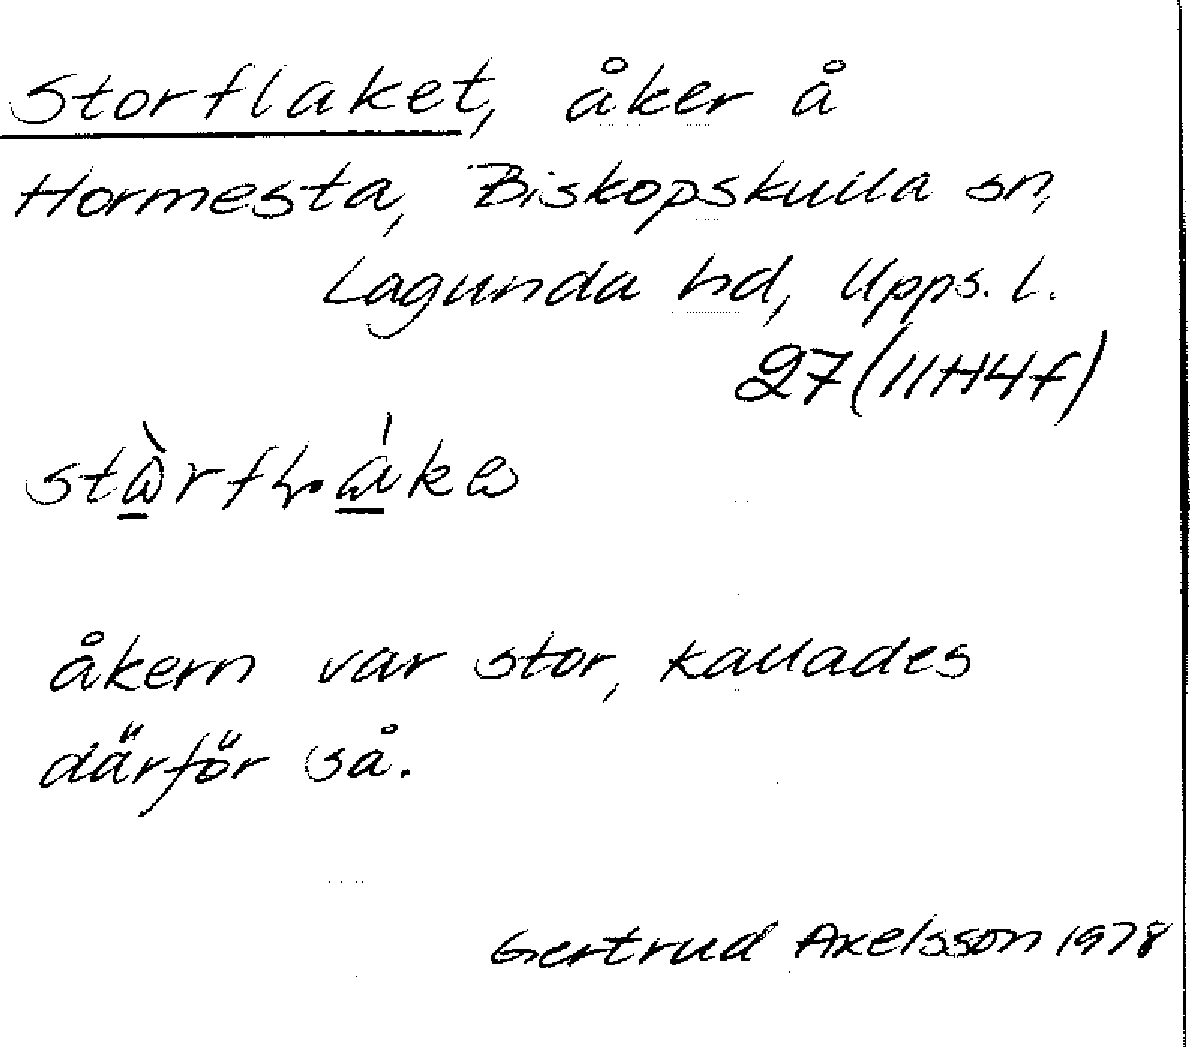 Storflaket, åker å
Hormesta, Biskopskulla sn,
Lagunda hd, Upps. l.
27(11H4f)
åkern var stor, kallades
därför så.
Gertrud Axelsson 1978